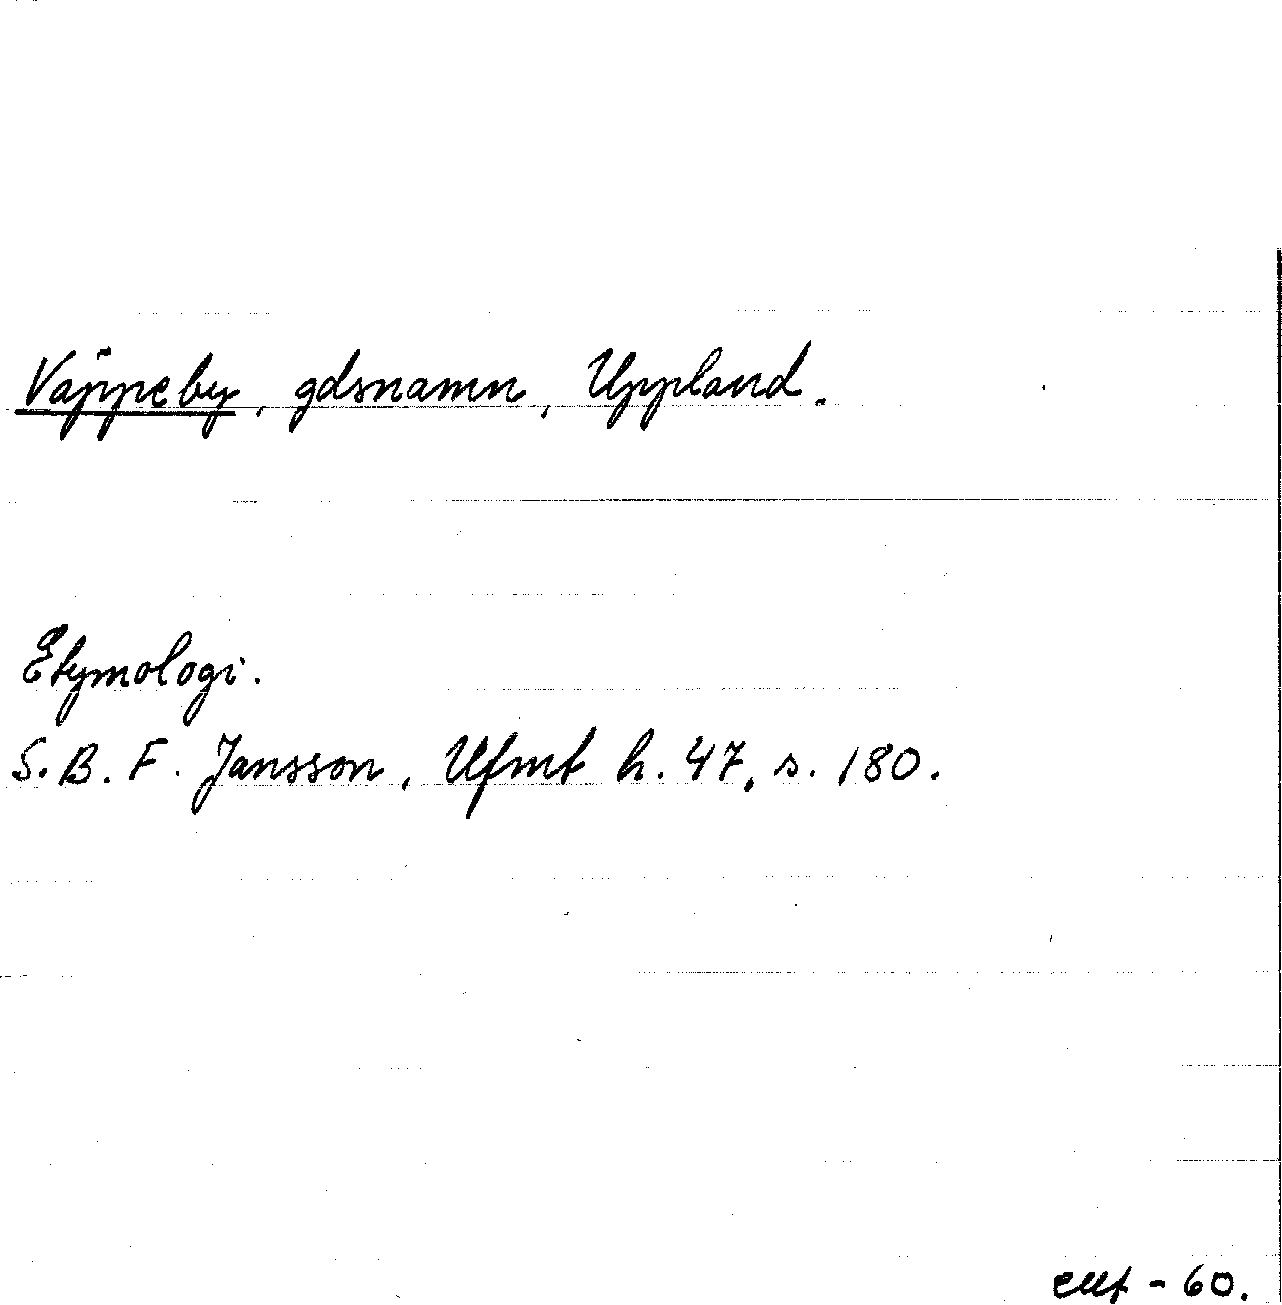 Väppeby, gdsnamn, Uppland.
Etymologi.
S. B. F. Jansson, Ufmt h. 47, s. 180.
- 60.